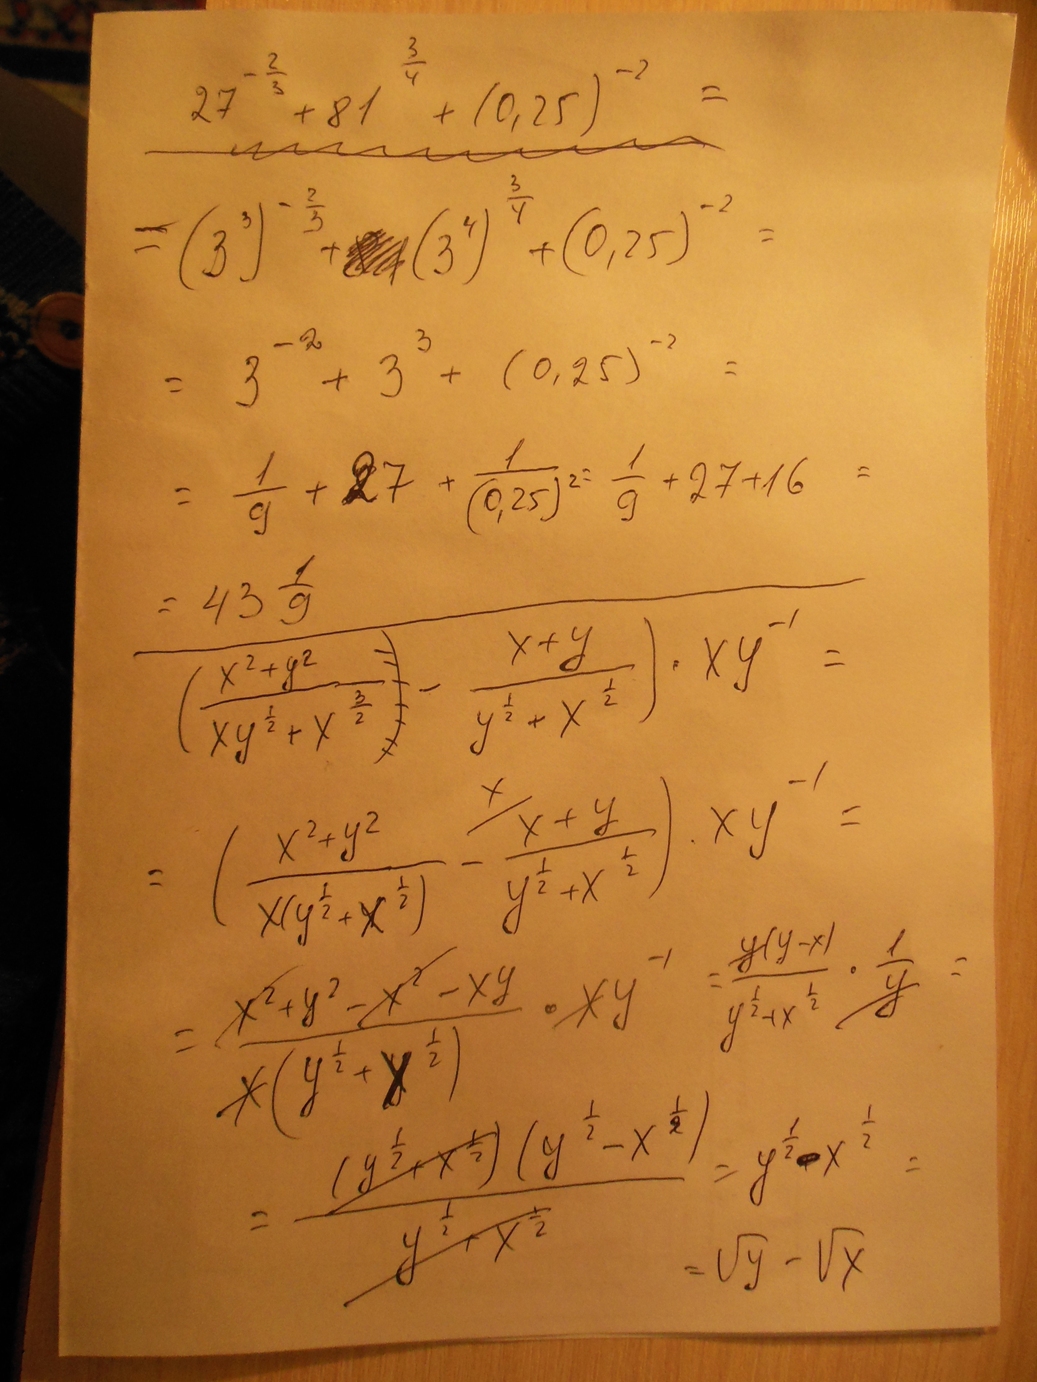 27^{-2/3} + 81^{3/4} + (0,25)^{-2} =
= (3^3)^{-2/3} + (3^4)^{3/4} + (0,25)^{-2} =
= 3^{-2} + 3^3 + (0,25)^{-2} =
= 1/9 + 27 + 1/(0,25)^2 = 1/9 + 27 + 16 =
= 43 1/9
((x^2 + y^2)/(xy^{1/2} + x^{3/2}) - (x + y)/(y^{1/2} + x^{1/2})) · xy^{-1} =
= ((x^2 + y^2)/(x(y^{1/2} + x^{1/2})) - x/ (x + y)/(y^{1/2} + x^{1/2})) · xy^{-1} =
= (x^2 + y^2 - x^2 - xy)/(x(y^{1/2} + y^{1/2})) · xy^{-1} = y(y - x)/(y^{1/2} + x^{1/2}) · 1/y =
= (y^{1/2} + x^{1/2})(y^{1/2} - x^{1/2})/(y^{1/2} + x^{1/2}) = y^{1/2} - x^{1/2} =
= √y - √x